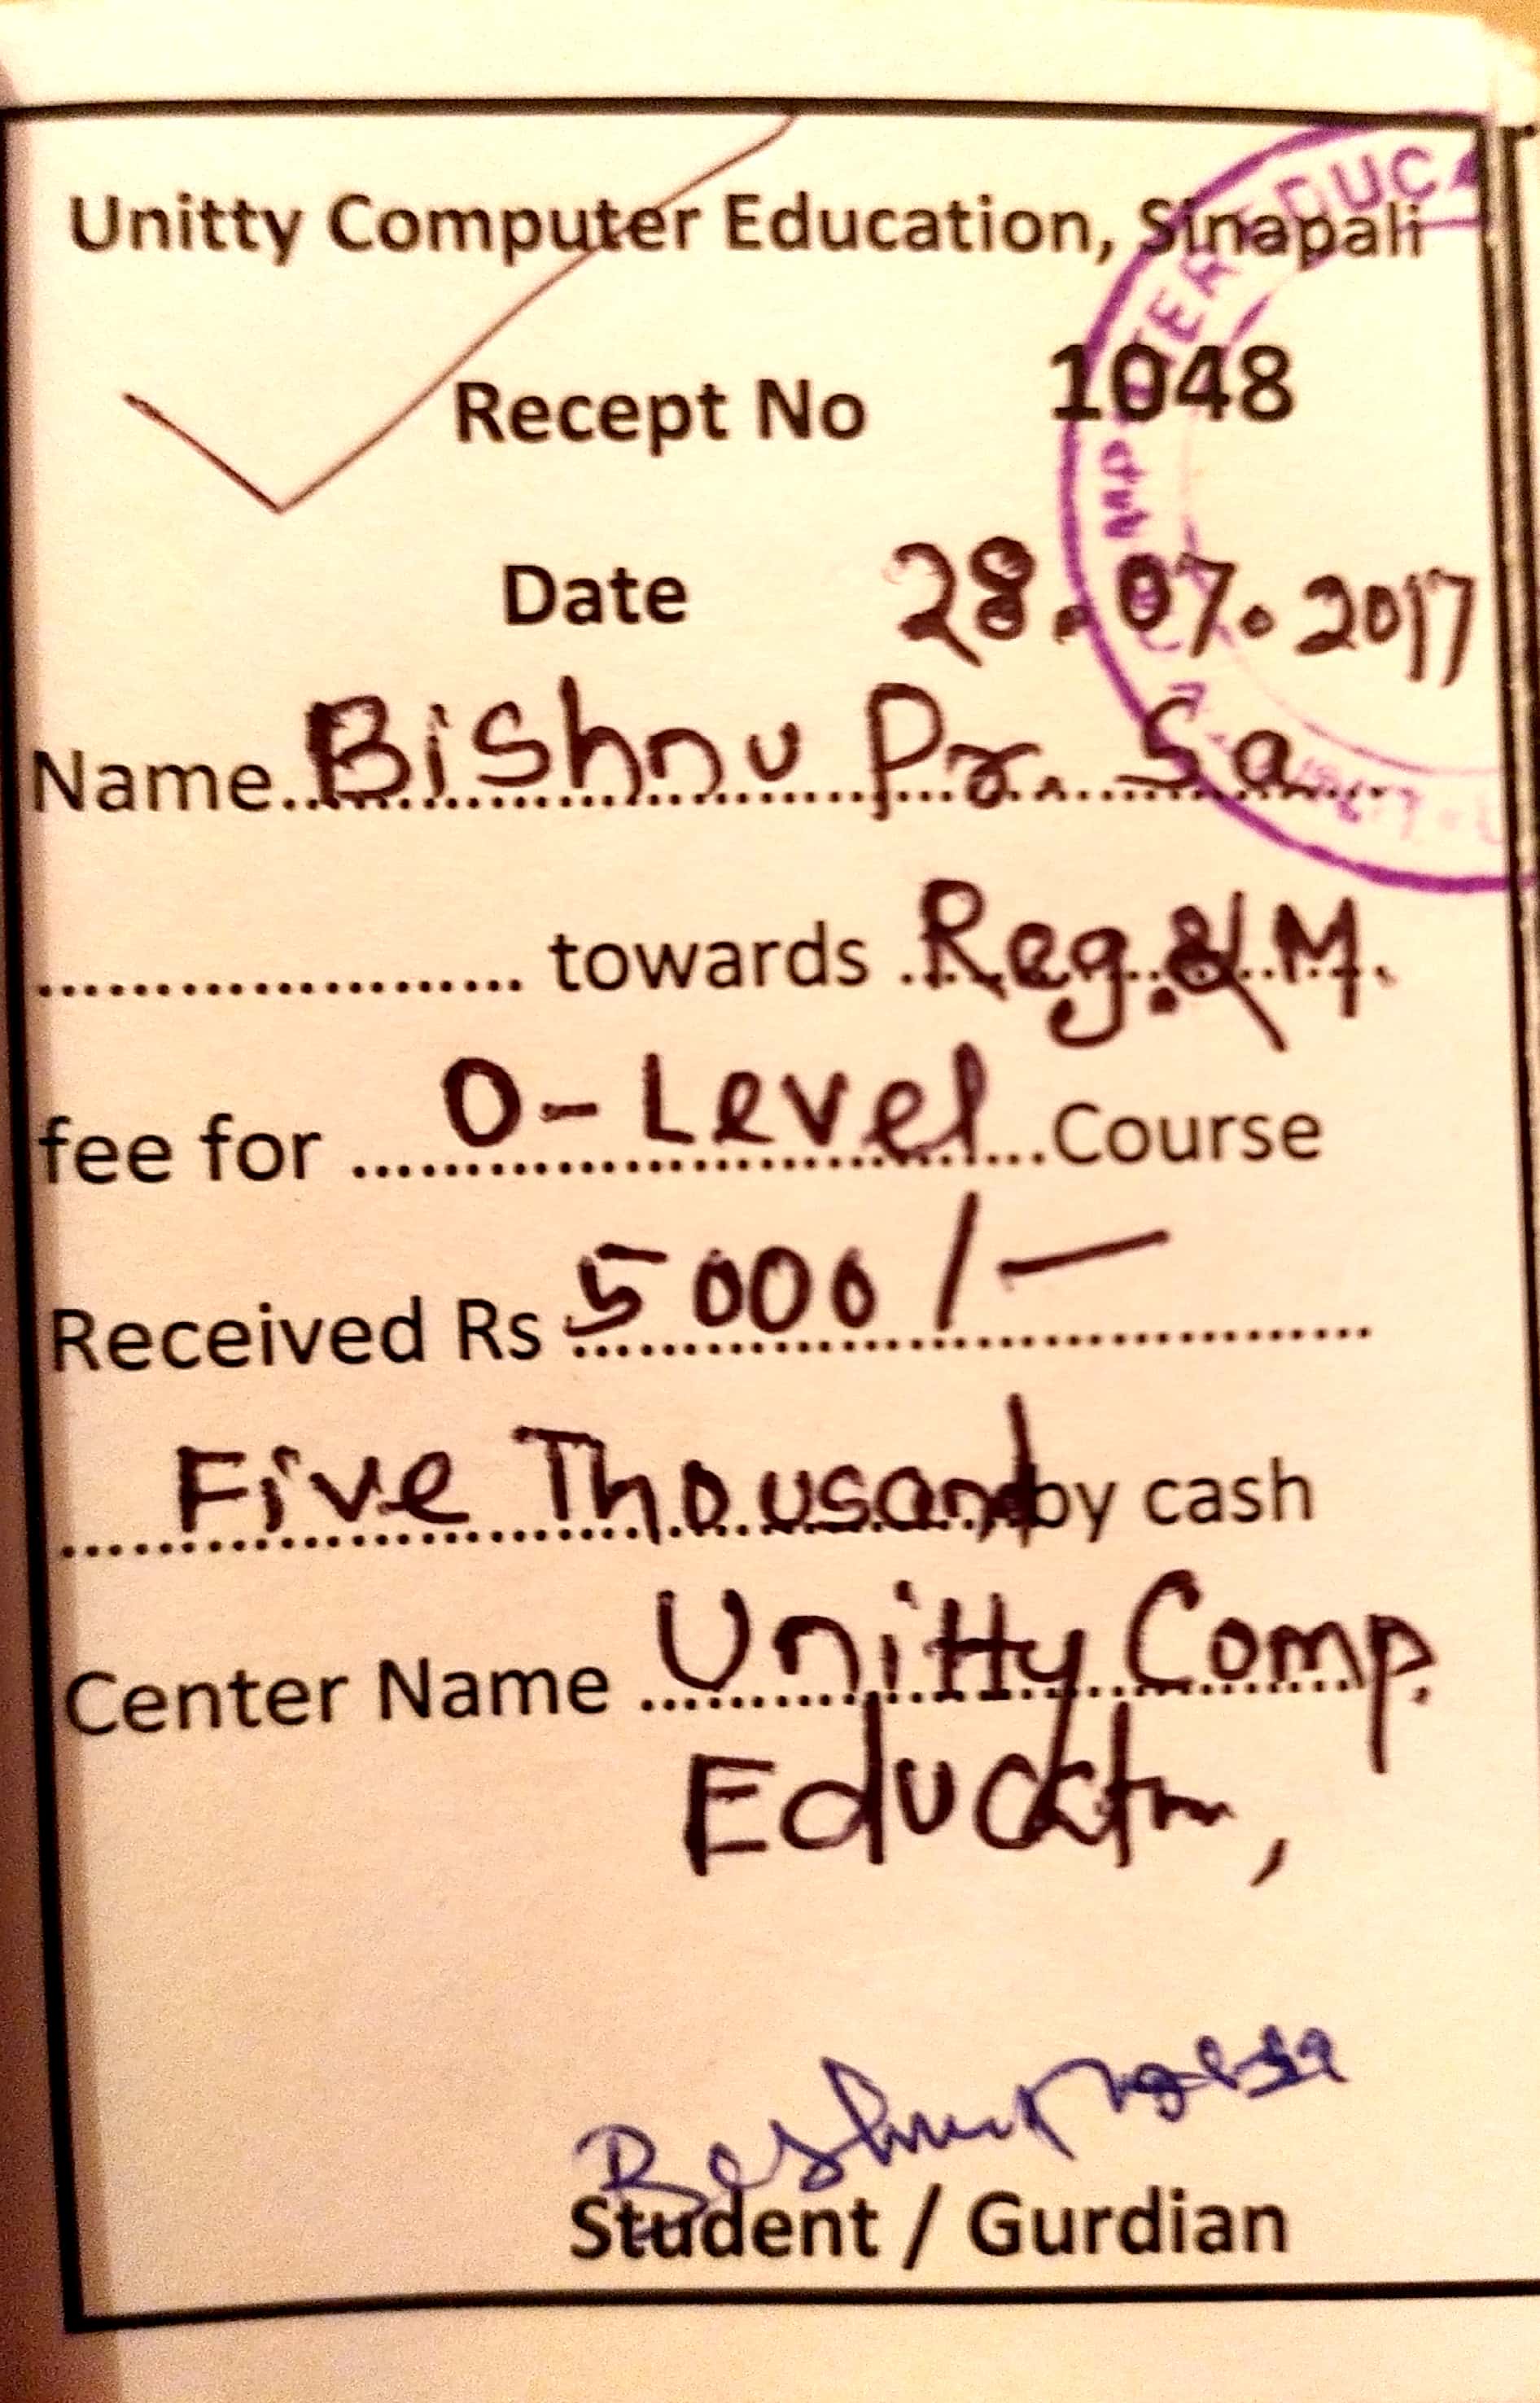 Unitty Computer Education, Sinapali
Recept No 1048
Date 28.07.2017
Name Bishnu Pr. Sa
towards Reg. & M.
fee for O-Level Course
Received Rs 5000/-
Five Thousand by cash
Center Name Unitty Comp.
Education,
Student / Gurdian